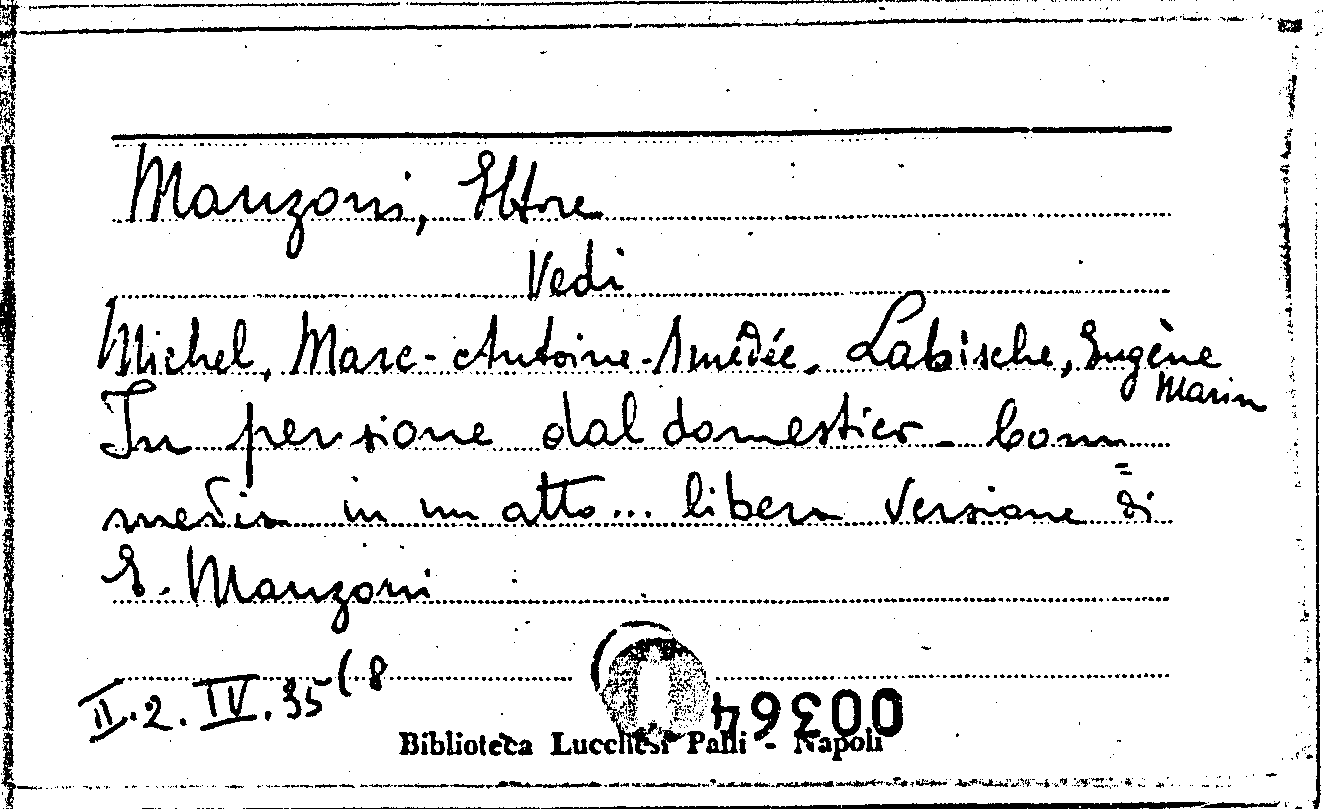 Manzoni, Ettore
Vedi
Michel, Marc-Antoine-Amédée. Labische, Eugène
Marin
In pensione dal domestico - Com=
media in un atto... libera versione di
E. Manzoni
II.2.IV.35(8
00364
Biblioteca Lucchesi Palli - Napoli